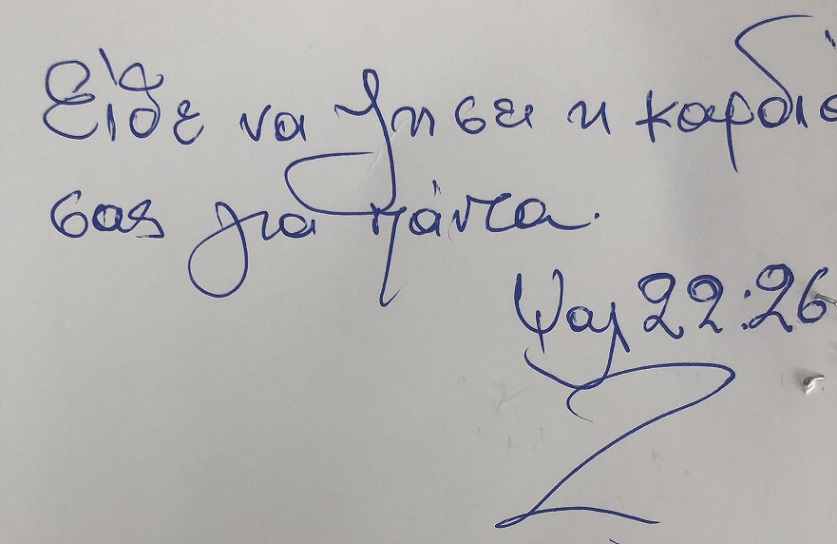 Είθε να ζήσει η καρδιά
σας για πάντα.
Ψαλ 22:26
Ζ